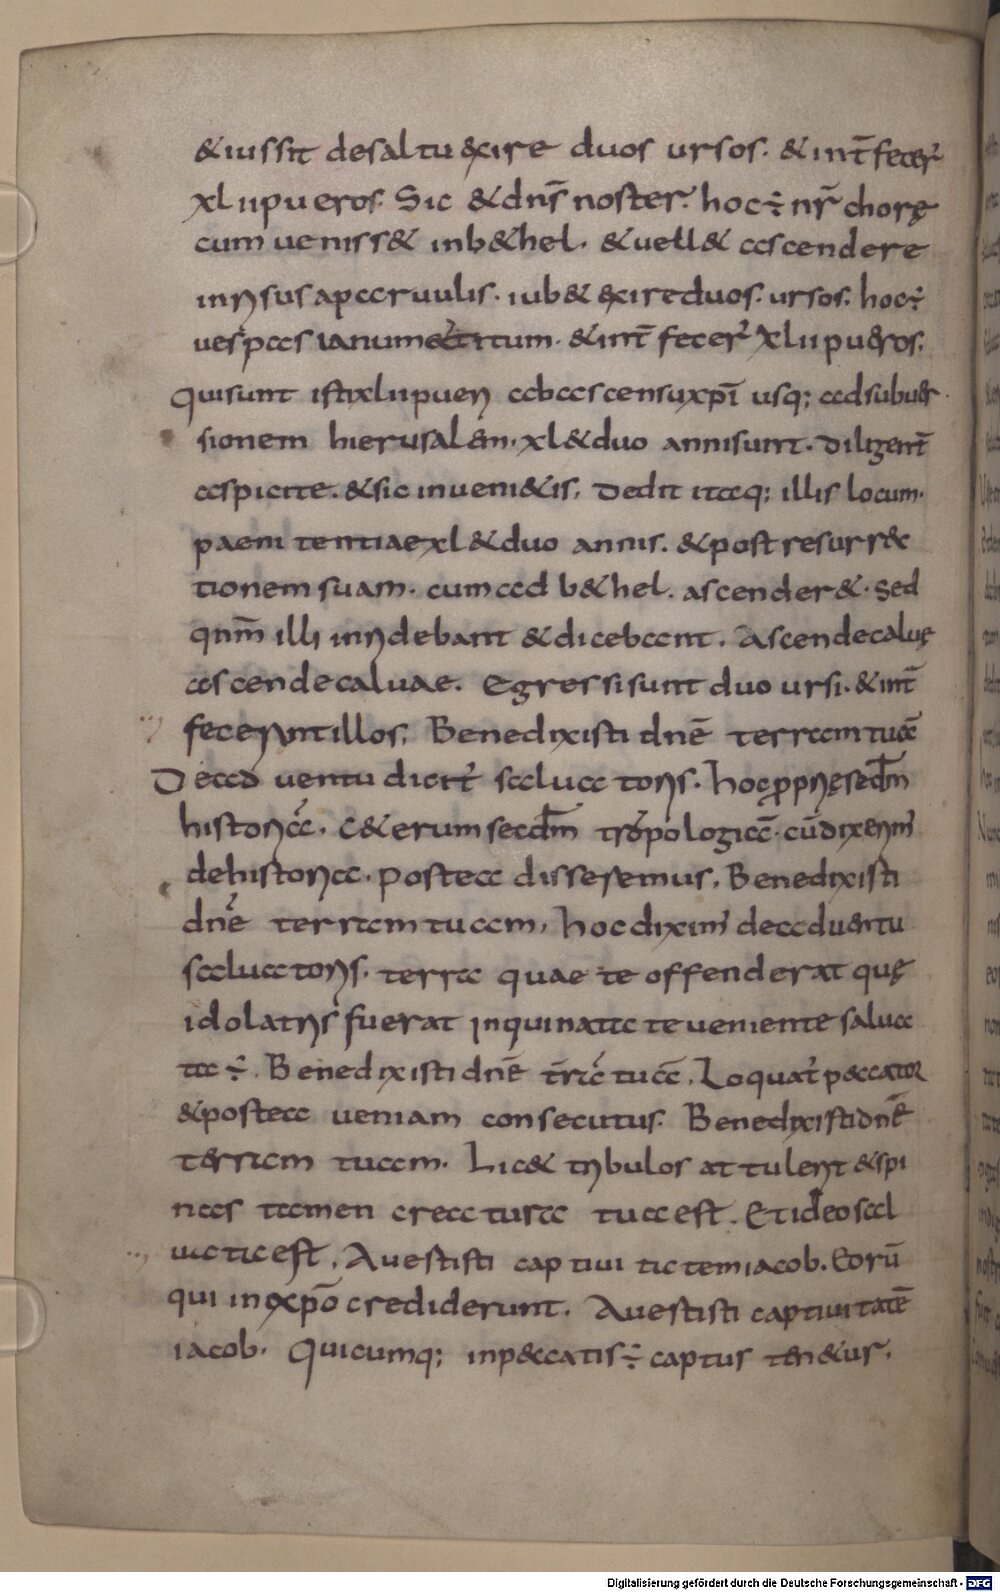 &iussit desaltu exire duos ursos. & int̄fecer̄
xlii pueros. Sic & dn̄s noster. hoc ÷ nr̄ chorę
cum veniss& inb&hel. & uell& ascendere
inrisus a parvulis. iub& exire duos. ursos. hoc ÷
uespasianum & titum. & int̄ fecer̄ xlii pueros.
Qui sunt isti xlii pueri ab ascensu xp̄i usq; ad subuer
sionem hierusalem. xl & duo anni sunt. Diligent̄
aspicite. & sic inueni&is. Dedit itaq; illis locum.
paenitentiae xl & duo annis. & post resurr&
tionem suam. cum ad b&hel. ascender&. Sed
qnm̄ illi inridebant & dicebant. Ascende caluę
ascende caluae. Egressi sunt duo ursi. & int̄
fecerunt illos. Benedixisti dnē terram tuā
De aduentu dicit̄ saluatoris. hoc proprię secdm̄
historiā. C&erum secdm̄ tropologiā. cū dixerim̄
de historia. postea disseremus. Benedixisti
dnē terram tuam. hoc diximus de aduentu
saluatoris. terra quae te offenderat quę
idolatris fuerat inquinata te ueniente salua
ta ÷. Benedixisti dnē trā tuā. Loquat̄ peccator
& postea ueniam consecutus. Benedixisti dnē
terram tuam. Lic& tribulos attulerit & spi
nas tamen creatura tua est. Et ideo sal
uata est. Auertisti captiuitatem iacob. Eorū
qui in xpo crediderunt. Auertisti captiuitatē
iacob. Quicumq; in peccatis ÷ captus ten&ur.
Digitalisierung gefördert durch die Deutsche Forschungsgemeinschaft - DFG